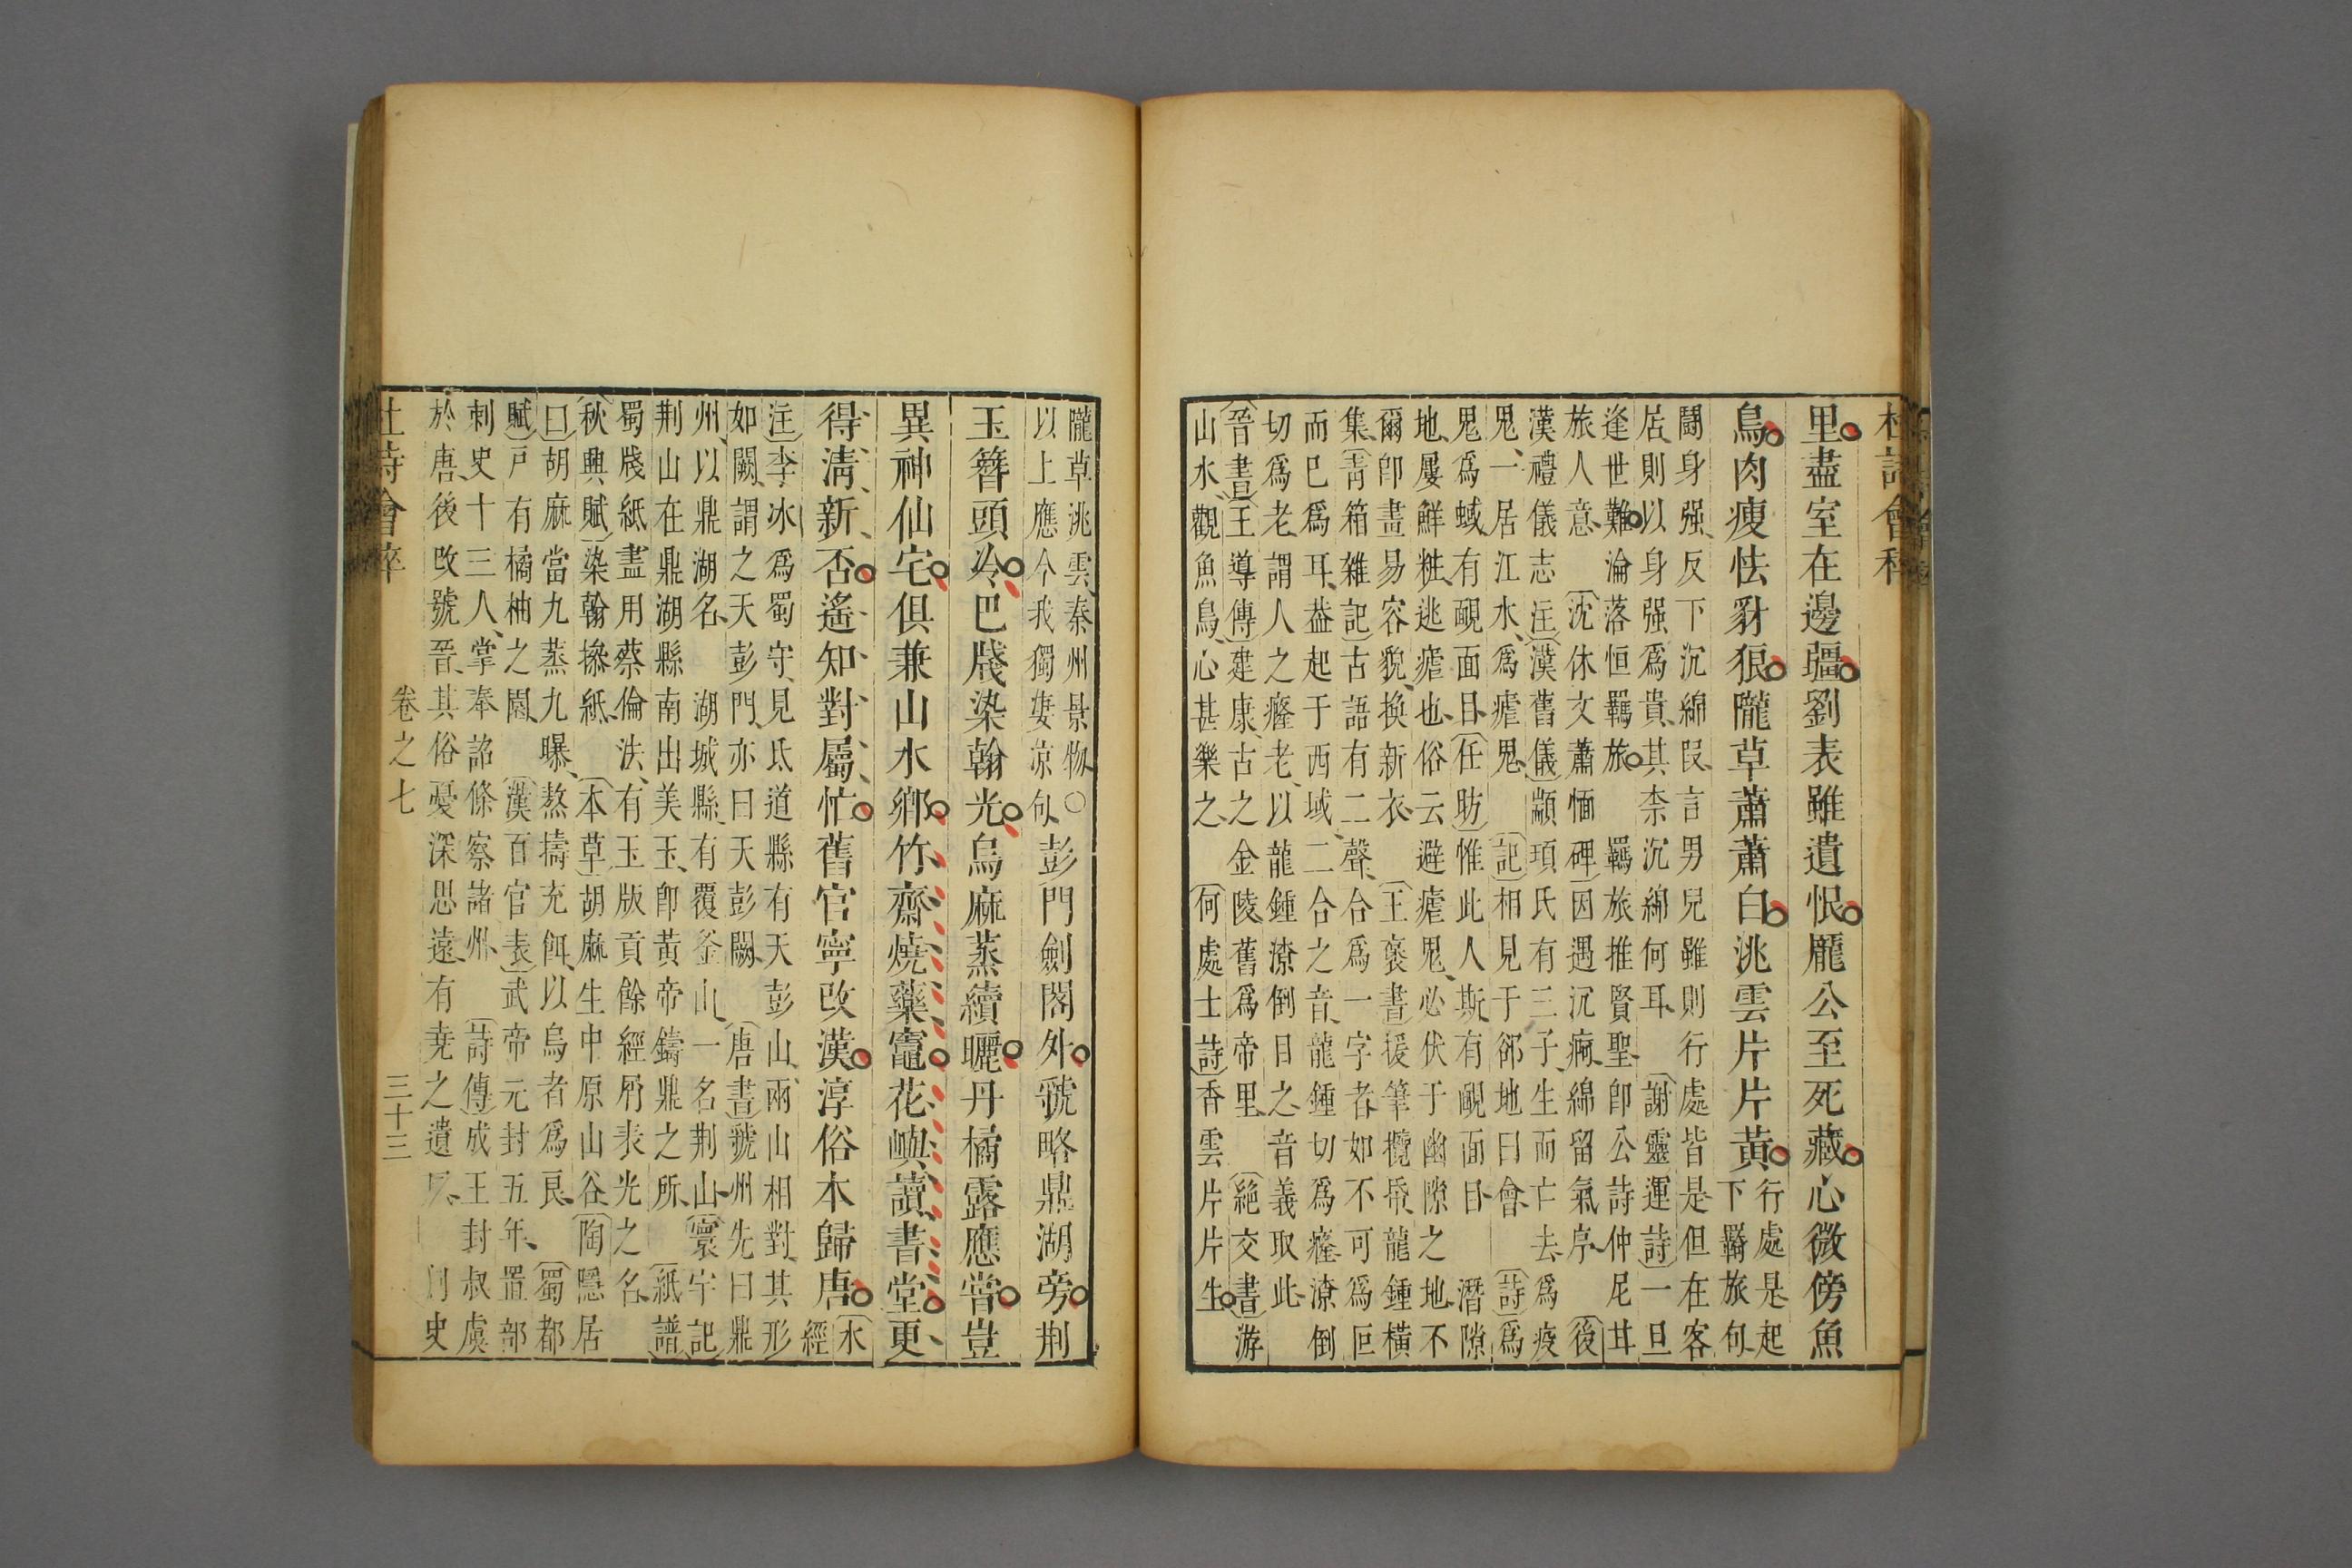 里盡室在邊疆劉表雖遺恨龐公至死藏心微傍魚
鳥肉瘦怯豺狼隴草蕭蕭白洮雲片片黃行處是起
下羇旅句
鬭身强反下沉綿叚言男兒雖則行處皆是但在客
居則以身强爲貴其柰沉綿何耳 謝靈運詩一旦
逢世難淪落恒羈旅 羈旅推賢聖卽公詩仲尼甘
旅人意 沈休文蕭愐碑因遇沉痾綿留氣序 後
漢禮儀志注漢舊儀顓頊氏有三子生而亡去爲疫
鬼一居江水爲瘧鬼 記相見于郤地曰會 詩爲
鬼爲蜮有靦面目任昉惟此人斯有靦面目 潛隙
地屢鮮粧逃瘧也俗云避瘧鬼必伏于幽隙之地不
爾卽畫易容貌換新衣 王襃書援筆攬㡡龍鍾橫
集靑箱雜記古語有二聲合爲一字者如不可爲叵
而已爲耳葢起于西域二合之音龍鍾切爲癃潦倒
切爲老謂人之癃老以龍鍾潦倒目之音義取此
晉書王導傳建康古之金陵舊爲帝里 絶交書游
山水觀魚鳥心甚樂之 何處士詩香雲片片生
隴草洮雲秦州景物○
以上應今我獨凄凉句
彭門劒閣外虢略鼎湖旁荆
玉簪頭冷巴牋染翰光烏麻蒸續曬丹橘露應嘗豈
異神仙宅俱兼山水鄉竹齋燒藥竈花嶼讀書堂更
得淸新否遙知對屬忙舊官寧改漢淳俗本歸唐水
經
注李冰爲蜀守見氐道縣有天彭山兩山相對其形
如闕謂之天彭門亦曰天彭闕 唐書虢州先曰鼎
州以鼎湖名 湖城縣有覆釜山一名荆山寰宇記
荆山在鼎湖縣南出美玉卽黃帝鑄鼎之所 紙譜
蜀牋紙盡用蔡倫法有玉版貢餘經屑表光之名
秋興賦染翰摻紙 本草胡麻生中原山谷陶隱居
曰胡麻當九蒸九曝熬擣充餌以烏者爲良 蜀都
賦戸有橘柚之園 漢百官表武帝元封五年置部
刺史十三人掌奉詔條察諸州 詩傳成王封叔虞
於唐後改號晉其俗憂深思遠有堯之遺 史
卷之七 三十三